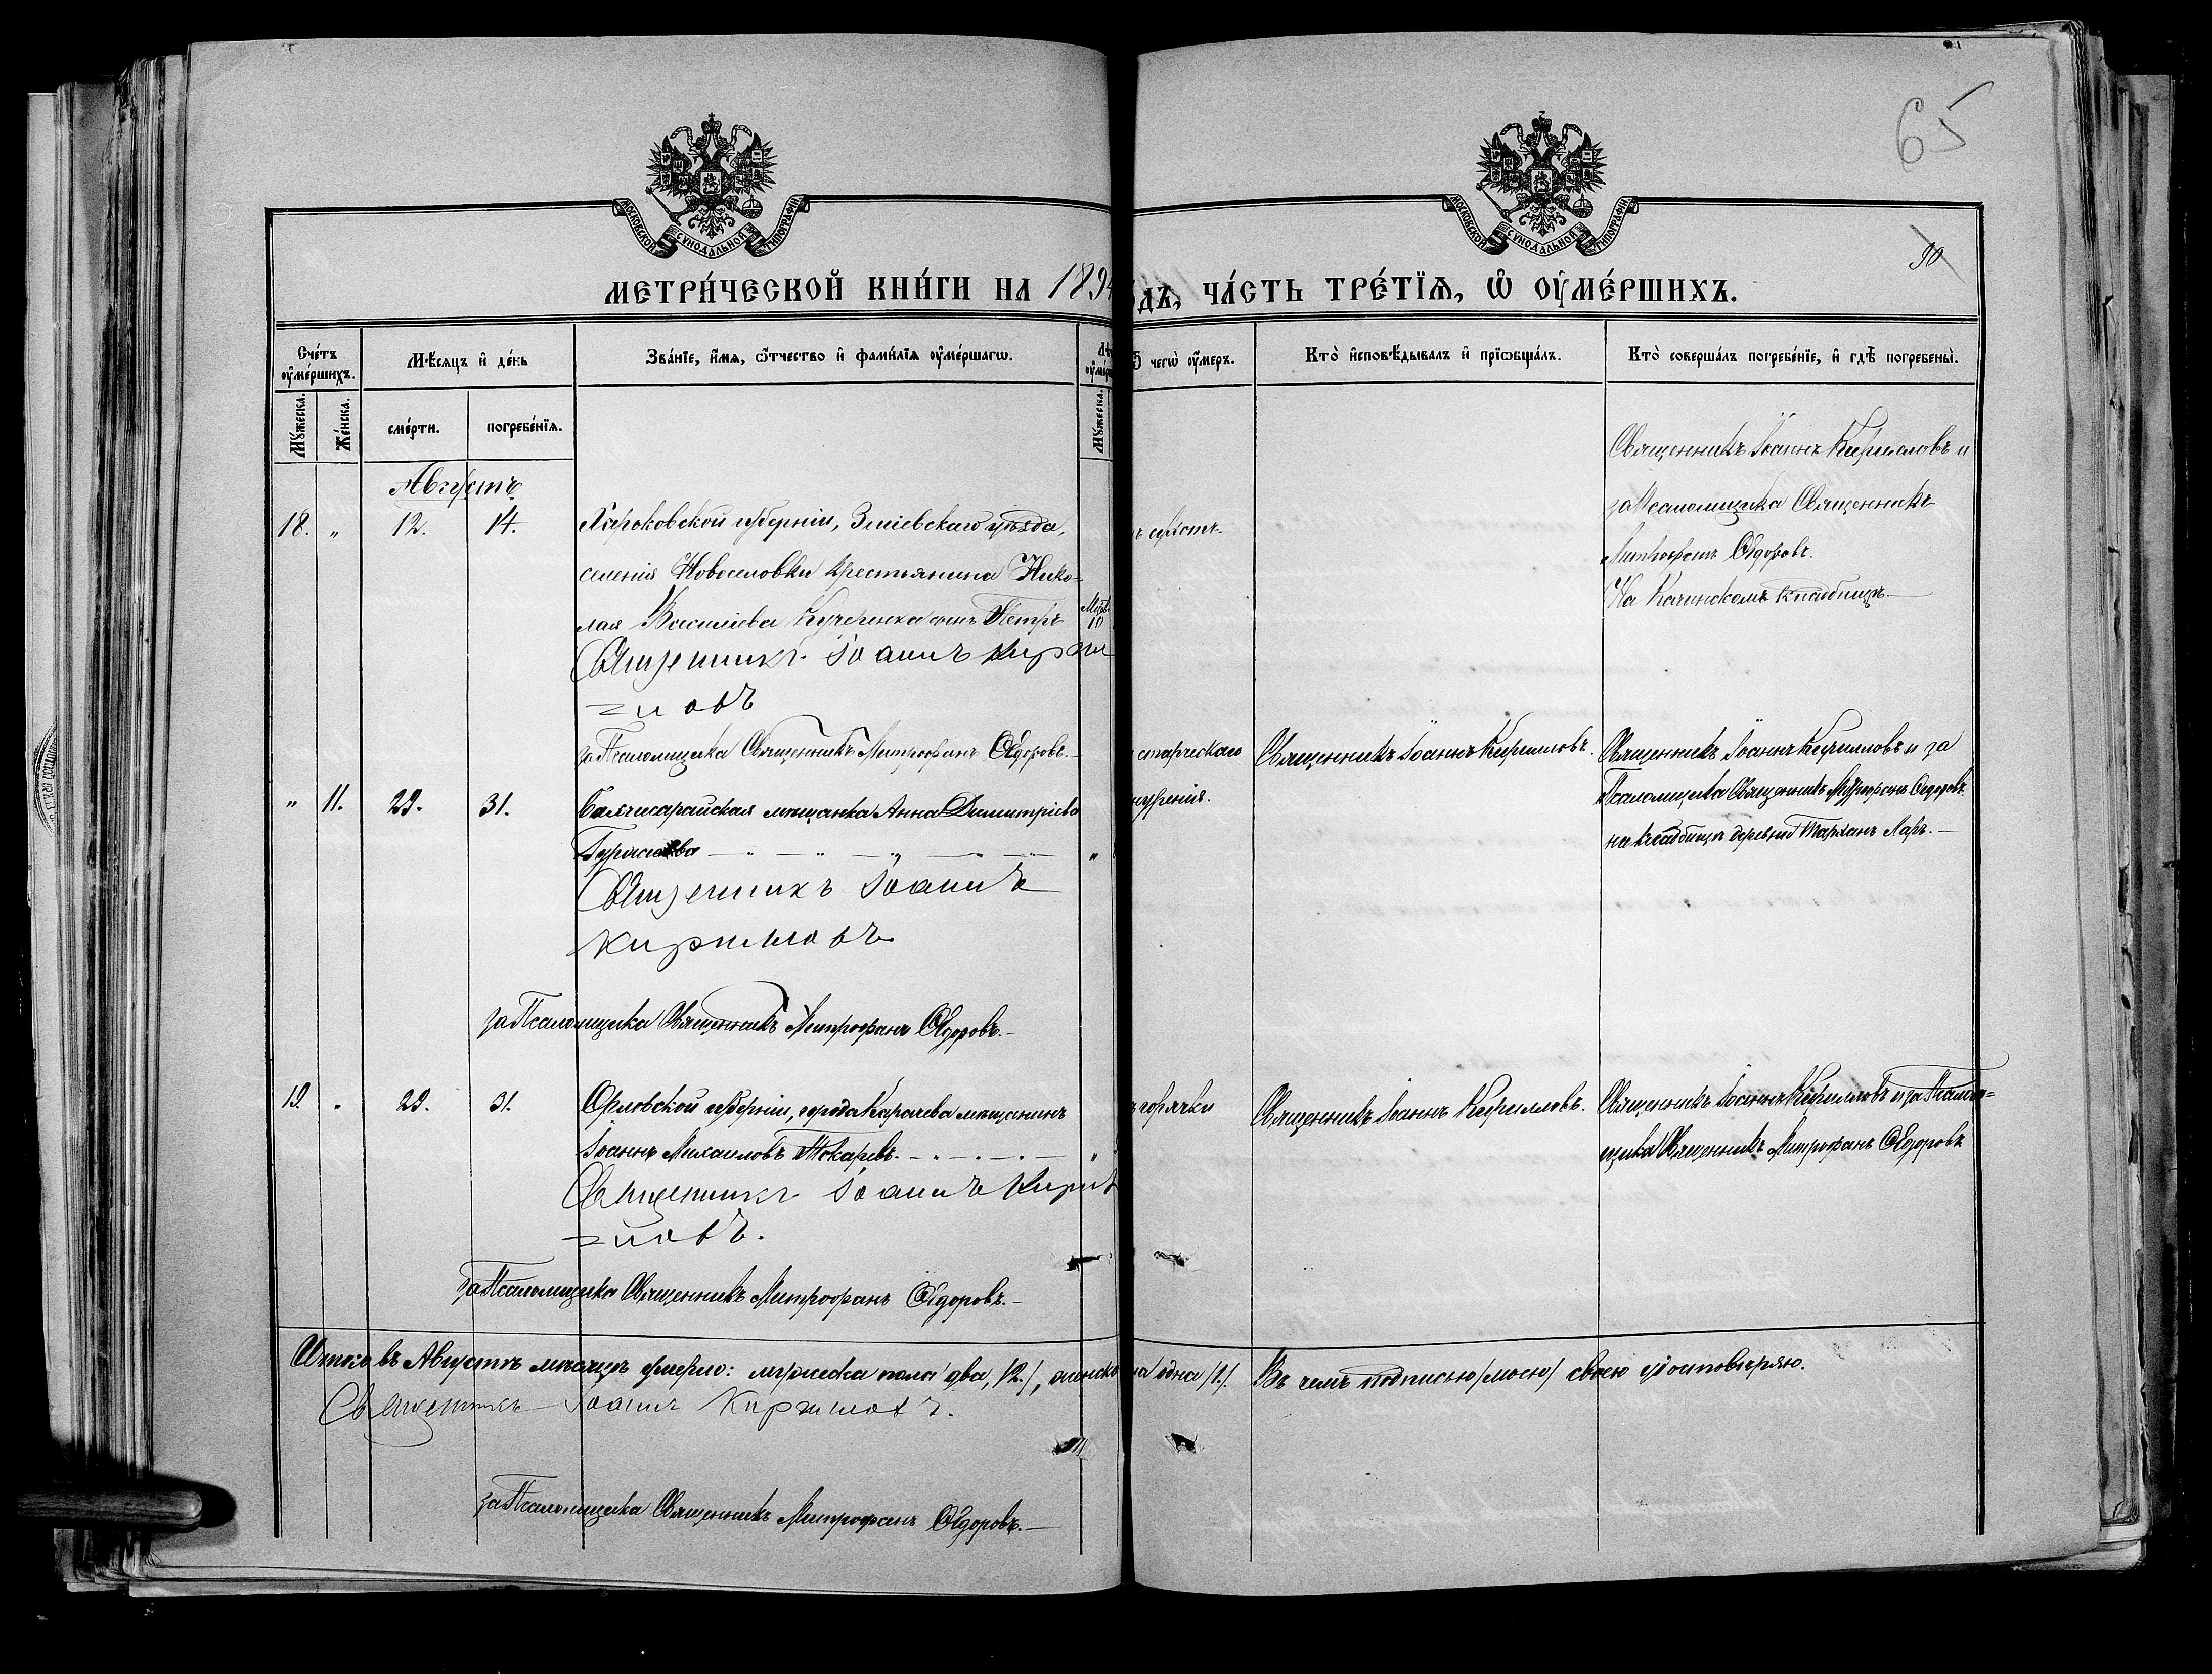 65
90
МОСКОВСКОЙ СУНОДАЛЬНОЙ ТИПОГРАФІИ
МОСКОВСКОЙ СУНОДАЛЬНОЙ ТИПОГРАФІИ
МЕТРИ́ЧЕСКОЙ КНИ́ГИ НА 1894
ДЪ, ЧА́СТЬ ТРЕ́ТЇѦ, Ѡ ОУМЕ́РШИХЪ.
Сче́тъ оуме́ршихъ.
Мѣ́сяцъ и де́нь
Зва́нїе, и́мя, ѻ҆́тчество и фами́лїя оуме́ршагѡ.
чегѡ̀ оу́меръ.
Кто̀ исповѣ́дывалъ и прїѡбща́лъ.
Кто̀ соверша́лъ погребе́нїе, и гдѣ̀ погребены̀.
Мꙋ́жеска.
Же́нска.
сме́рти.
погребе́нїя.
Мꙋ́жеска.
Августъ
18. " 12. 14. Харьковской губерніи, Зміевскаго уѣзда,
селенія Новоселовки крестьянина Нико-
лая Васильева Кучеренка сынъ Петръ
10
Священникъ Іоаннъ Кирил
=ловъ
за Псаломщика Священникъ Митрофанъ Ѳедоровъ.
Священникъ Іоаннъ Кирилловъ и
за Псаломщика Священникъ
Митрофанъ Ѳедоровъ.
На Качинскомъ кладбищѣ.
" 11. 29. 31. Бахчисарайская мѣщанка Анна Димитріева
Священникъ Іоаннъ
Кирилловъ
за Псаломщика Священникъ Митрофанъ Ѳедоровъ.
старческаго
Священникъ Іоаннъ Кирилловъ.
Священникъ Іоаннъ Кирилловъ и за
Псаломщика Священникъ Митрофанъ Ѳедоровъ.
на кладбищѣ деревни Тархан Ларъ.
19. " 29. 31. Орловской губерніи, города Карачева мѣщанинъ
Іоаннъ Михаиловъ Токаревъ.
Священникъ Іоаннъ Кирил
=ловъ.
за Псаломщика Священникъ Митрофанъ Ѳедоровъ.
горячки
Священникъ Іоаннъ Кирилловъ.
Священникъ Іоаннъ Кирилловъ и за Псалом-
щика Священникъ Митрофанъ Ѳедоровъ
Итого въ Августѣ мѣсяцѣ умерло: мужеска пола два, /2/, женска одна /1/. Въ чемъ подписью /моею/ своею удостовѣряю.
Священникъ Іоаннъ Кирилловъ.
за Псаломщика Священникъ Митрофанъ Ѳедоровъ.